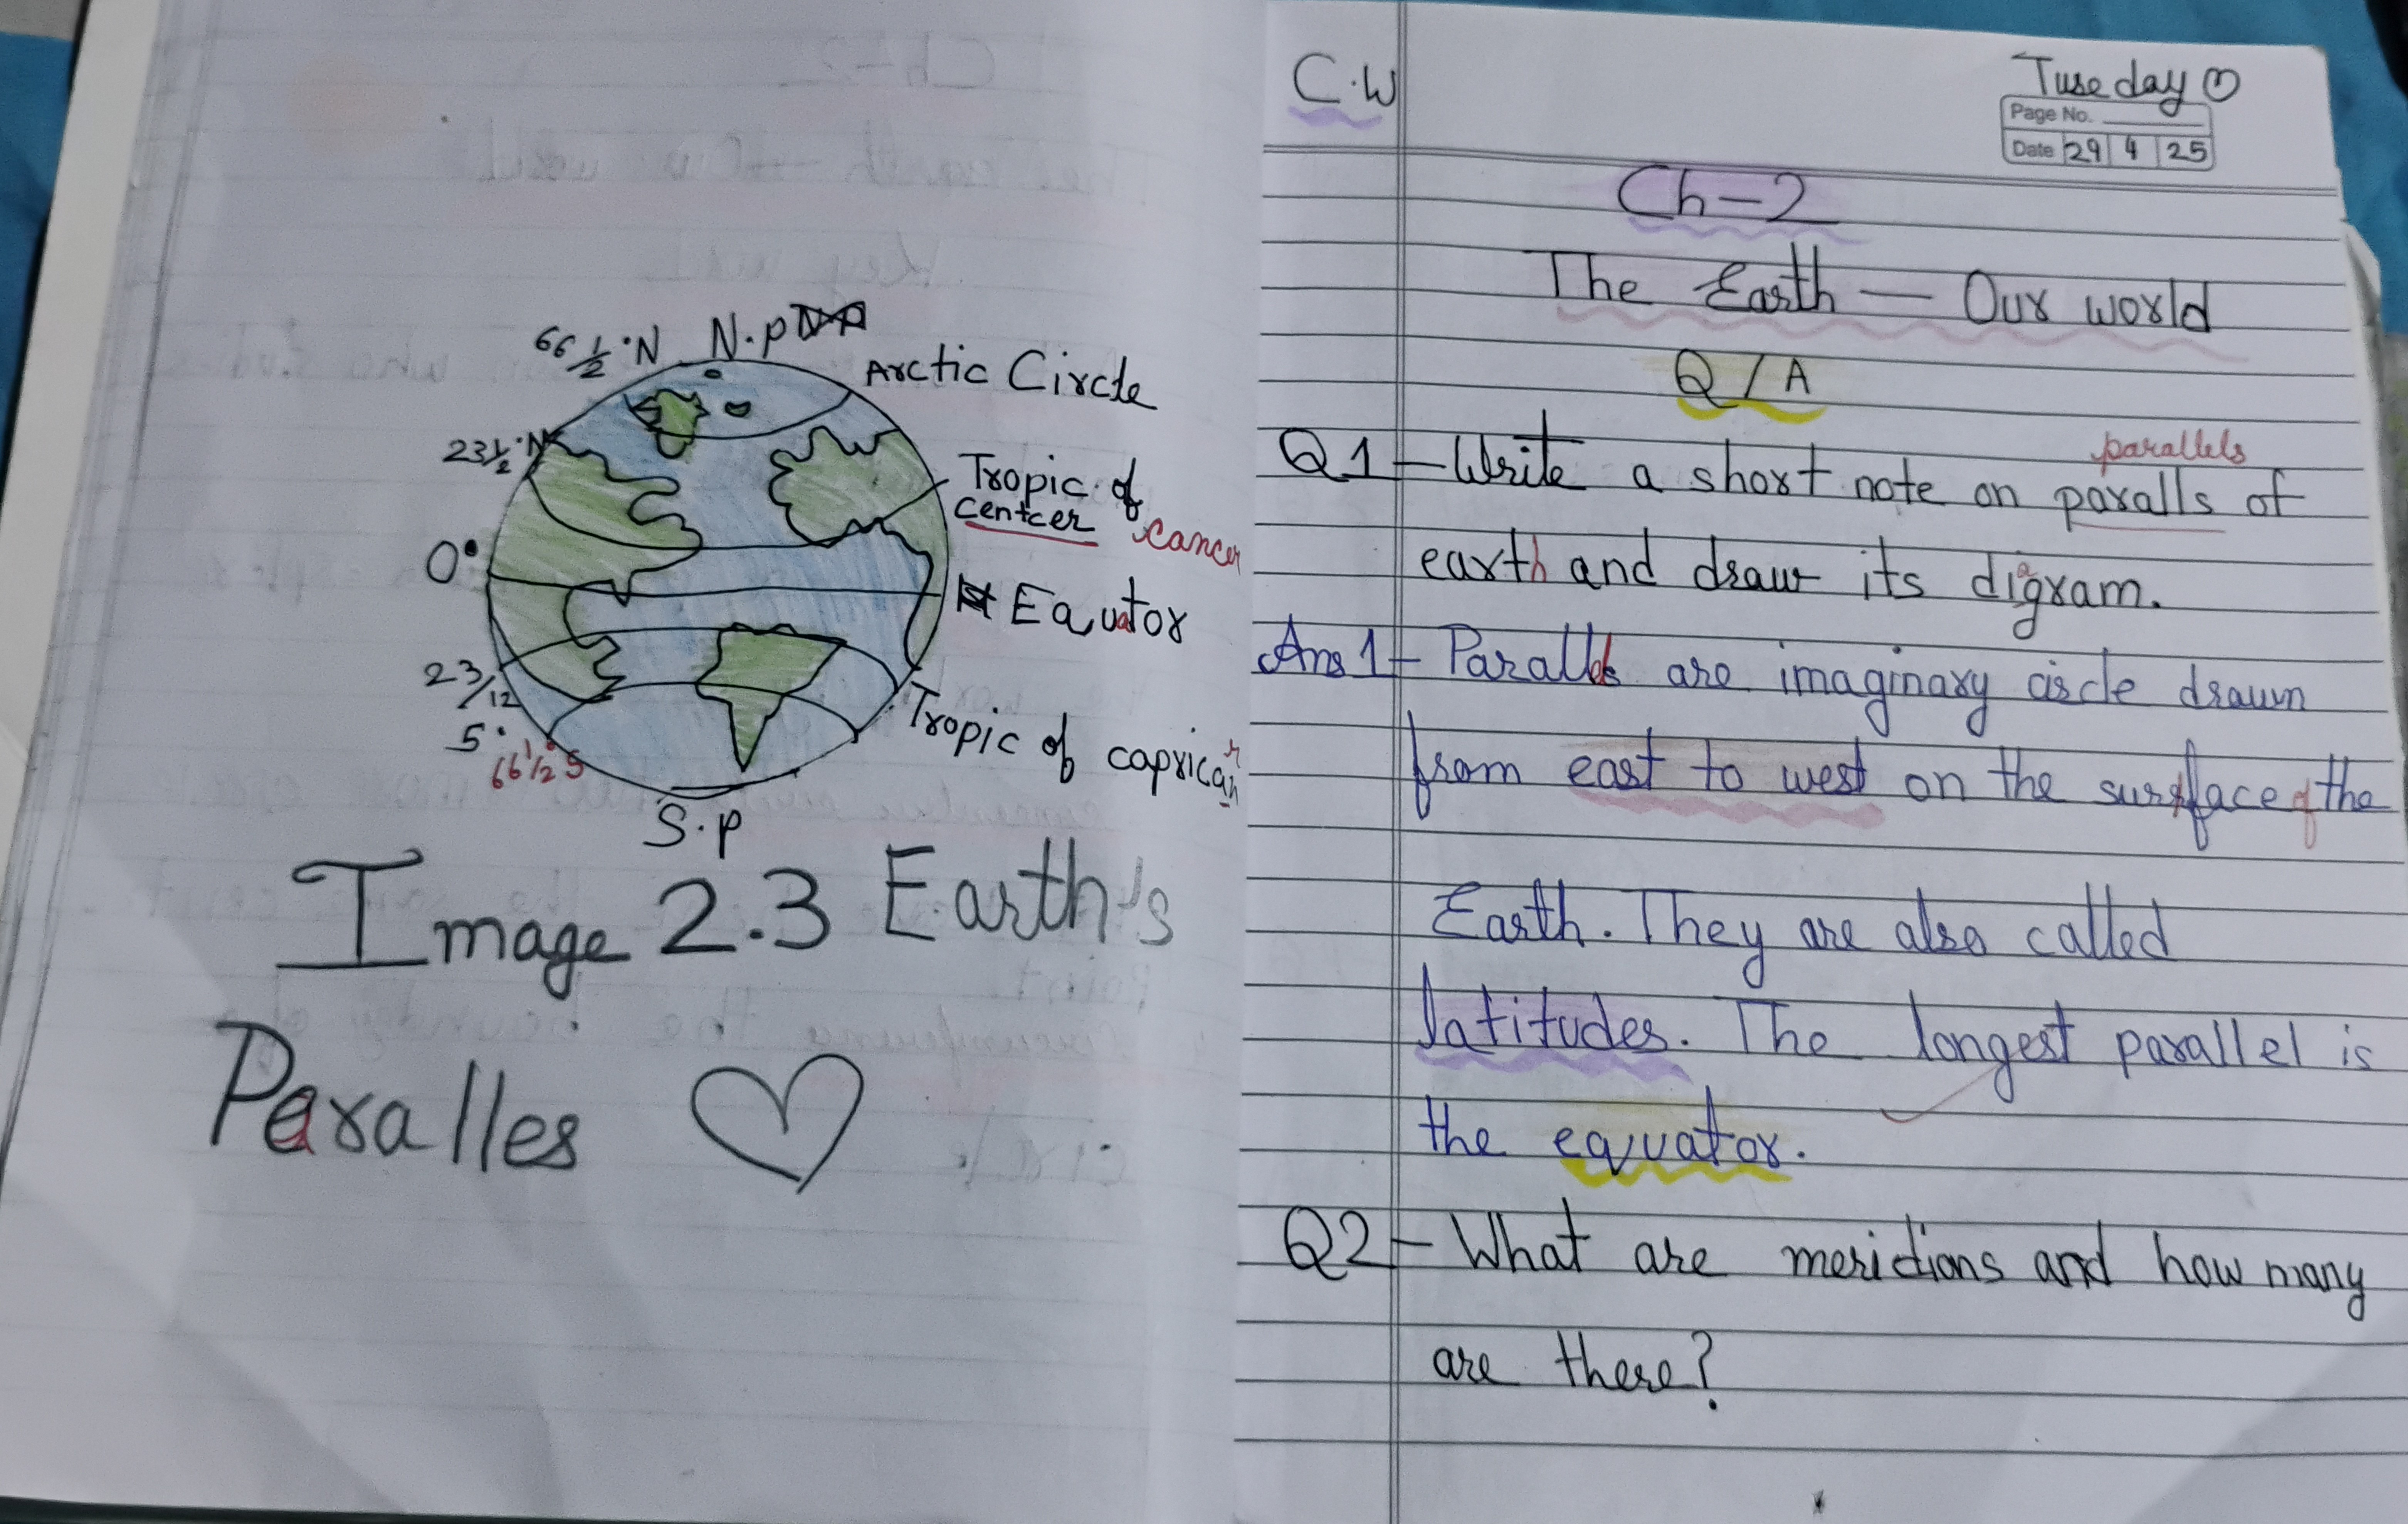 66 1/2 °N N.P
Arctic Circle
23 1/2 °N
Tropic of
Centcer cancer
0°
Equator
23/12
5°
66 1/2 S
Tropic of caprican
r
S.P
Image 2.3 Earth's
Paralles ♡
C.W
Tuseday
Page No.
Date 29 4 25
Ch-2
The Earth — Our world
Q/A
parallels
Q1 - Write a short note on paralls of
earth and draw its digram.
a
Ans 1 - Parallels are imaginary circle drawn
from east to west on the surface of the
Earth. They are also called
latitudes. The longest parallel is
the equator.
Q2 - What are meridions and how many
are there?